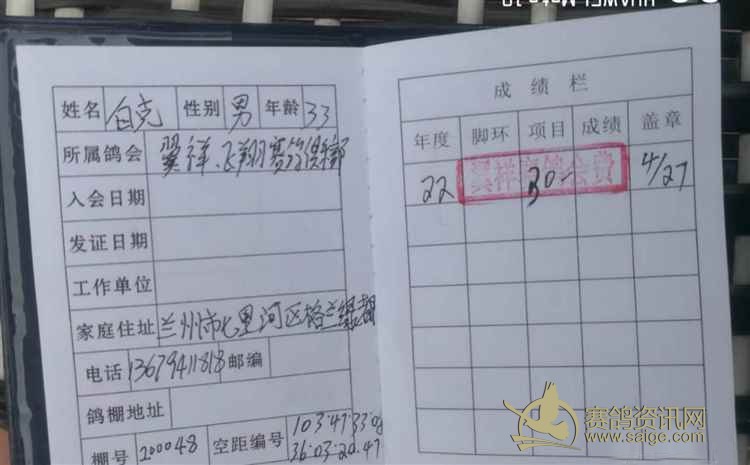 姓名 白克 性别 男 年龄 33
所属鸽会 翼祥、飞翔赛鸽俱部
入会日期
发证日期
工作单位
家庭住址 兰州市七里河区格兰绿都
电话 13679411818 邮编
鸽棚地址
棚号 200048 空距编号 103·47·33·08
36·03·20·47
成绩栏
年度 脚环 项目 成绩 盖章
22 30- 4/27
翼祥 鸽会费
赛鸽资讯网
www.saige.com